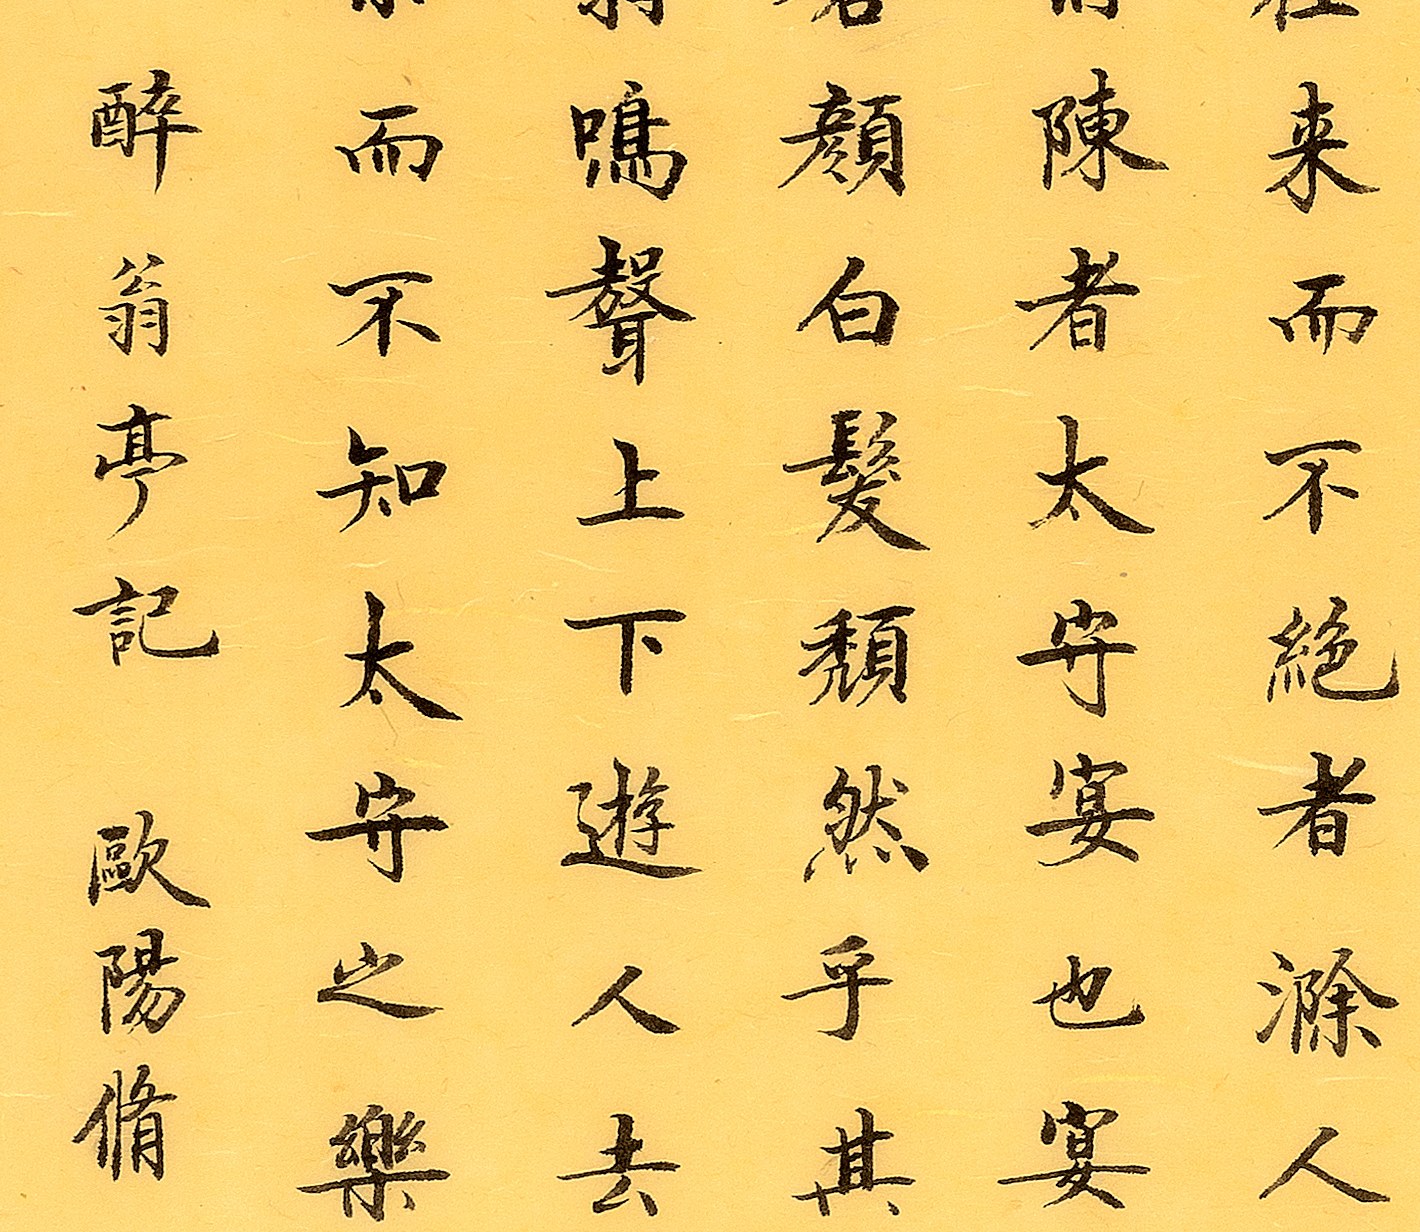 来而不絕者滁人
陳者太守宴也宴
顏白髮頹然乎其
鳴聲上下遊人去
而不知太守之樂
醉翁亭記 歐陽脩